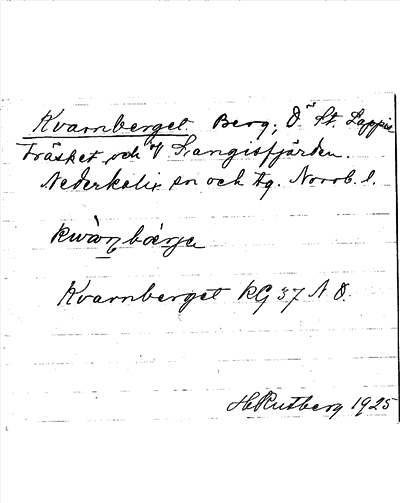 Kvarnberget. Berg, Ö St. Lappis-
träsket och V Sangisfjärden.
Nederkalix sn och tg. Norrb. l.
kwàɳ bærje
Kvarnberget KG 37 N Ö.
H Rutberg 1925